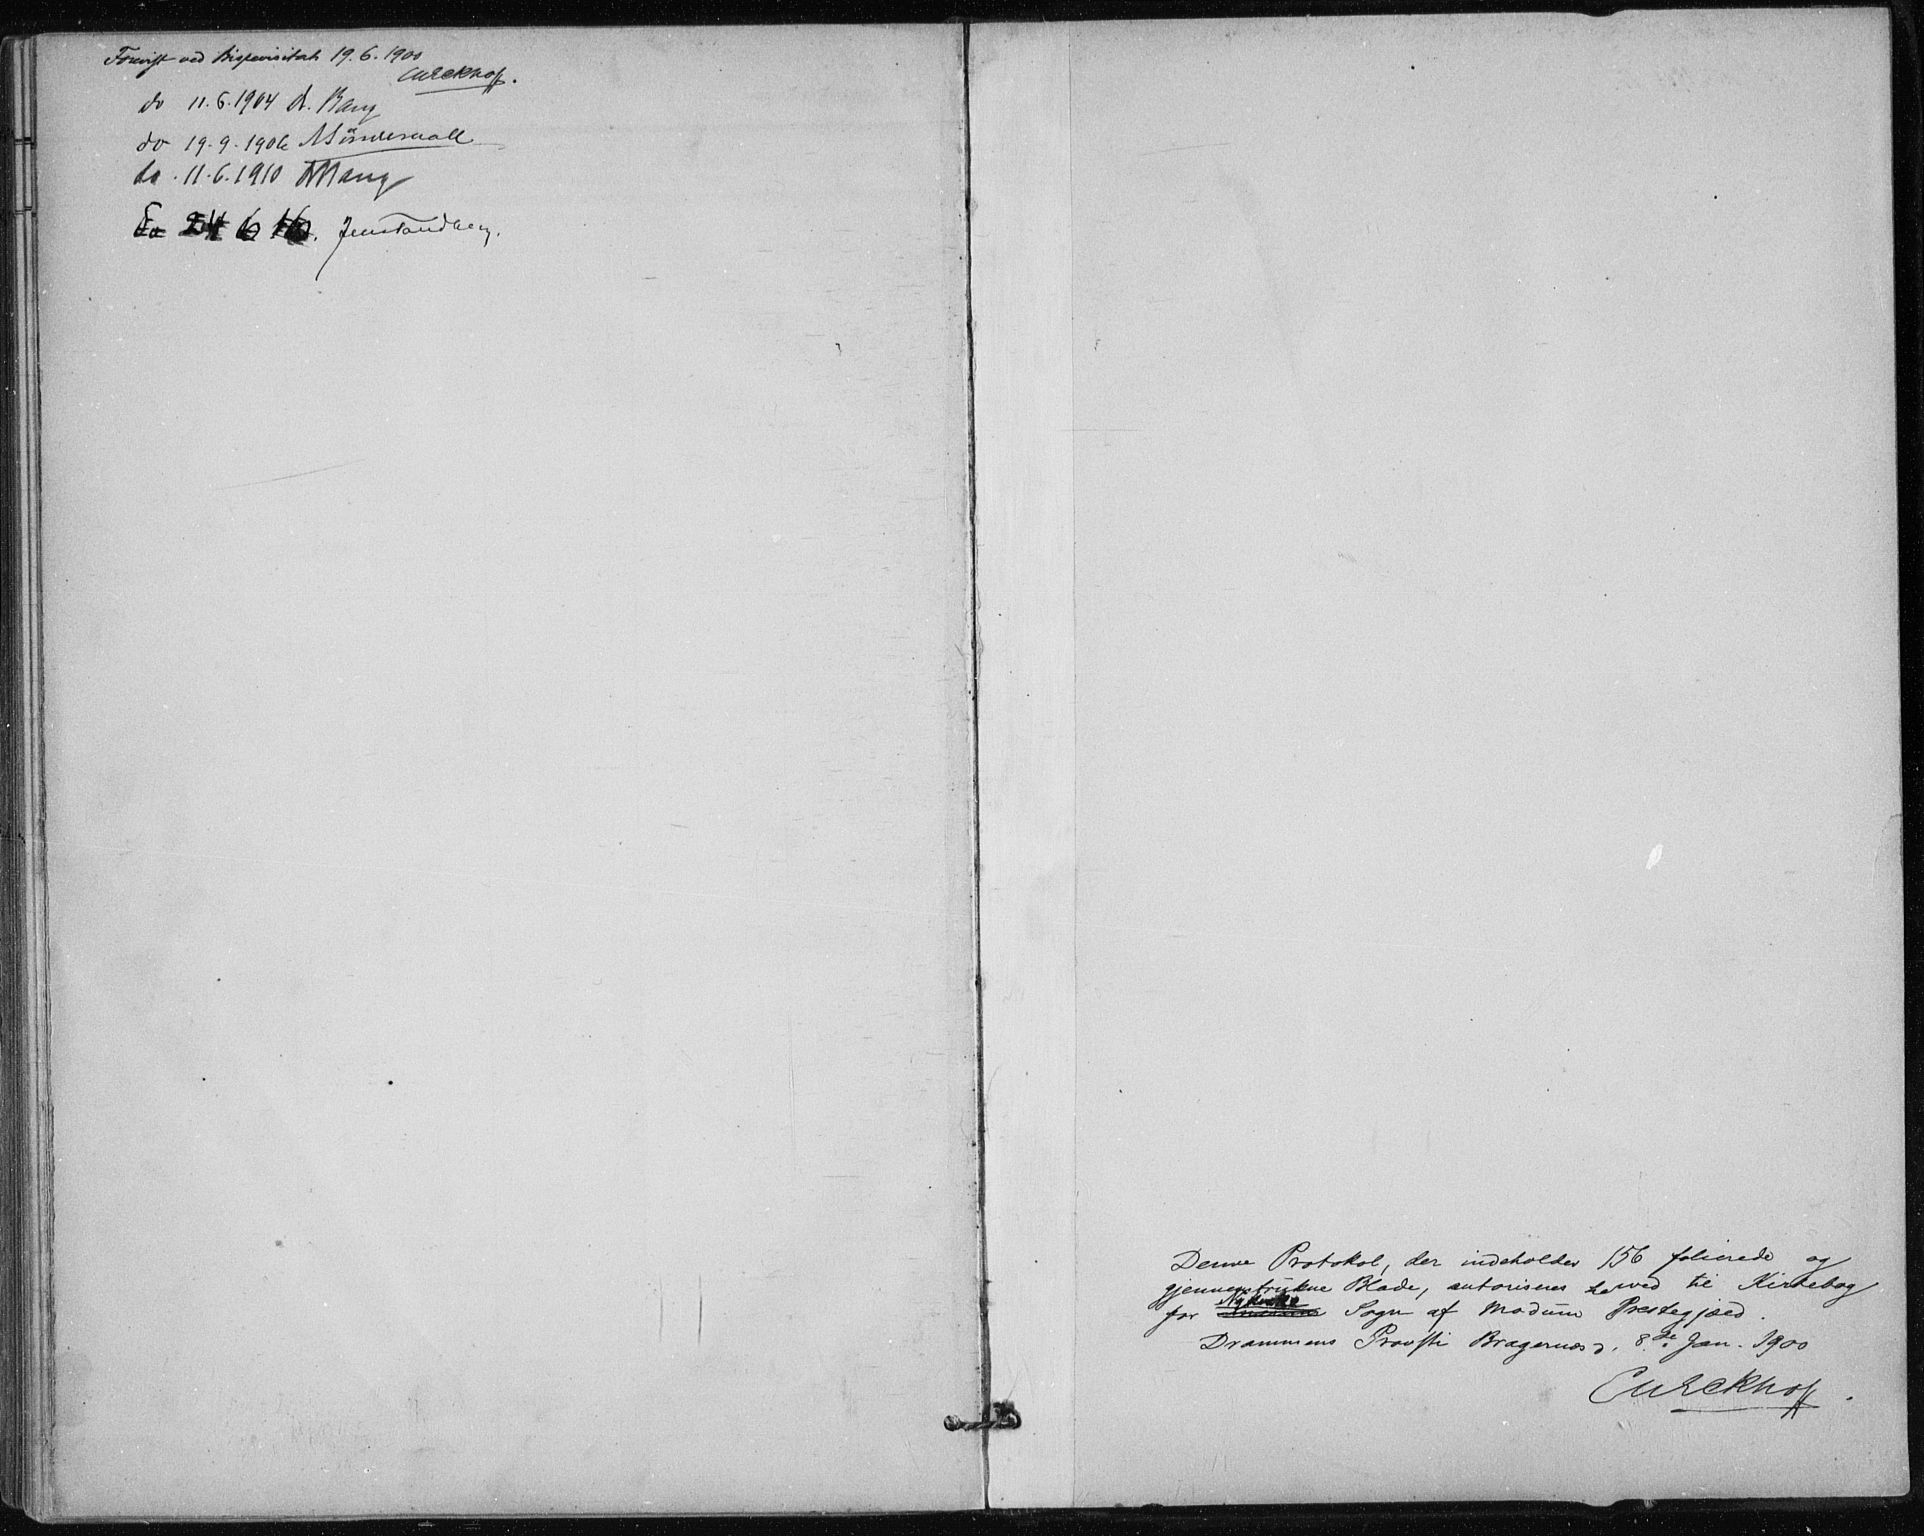 Forevist ved Bispevisitats 19.6.1900
CWEckhoff.
do 11.6.1904 A. Bang
do 19.9.1906
do. 11.6.1910 AChrBang
Do 24 6 16. Jens Tandberg.
Denne Protokol, der indeholder 156 folierede og
gjennemtrukne Blade, autoriseres herved til Kirkebog
for Nykirke Sogn af Modum Prestegjæld.
Drammens Provsti Bragernæs, 8de Jan. 1900
CWEckhoff.